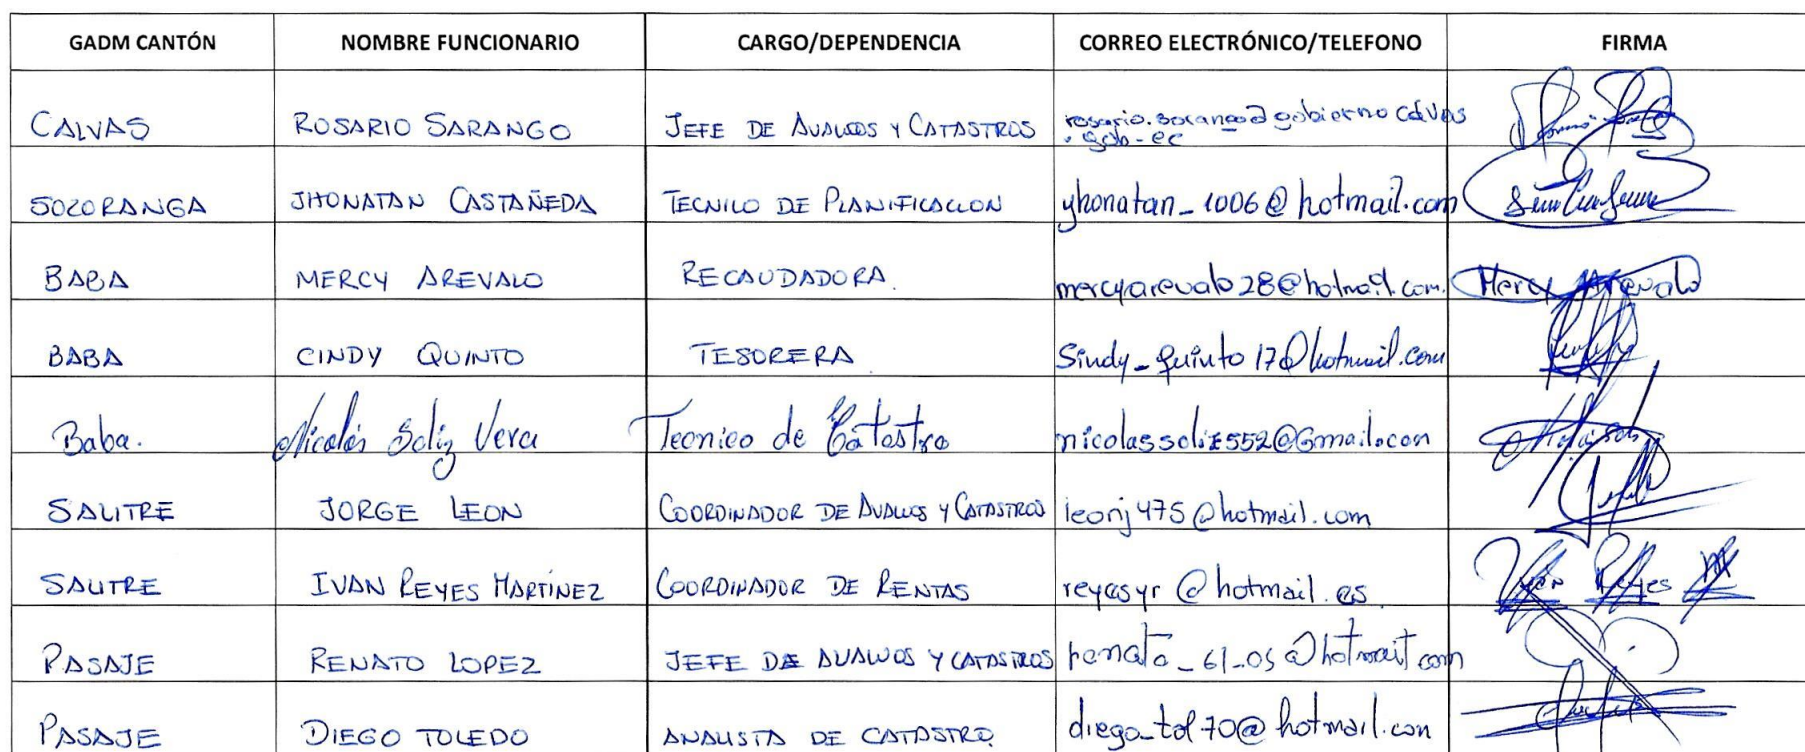 GADM CANTÓN NOMBRE FUNCIONARIO CARGO/DEPENDENCIA CORREO ELECTRÓNICO/TELEFONO FIRMA
CALVAS ROSARIO SARANGO JEFE DE AVALUOS Y CATASTROS rosario.sarango@gobiernocalvas
.gob.ec
SOZORANGA JHONATAN CASTAÑEDA TECNICO DE PLANIFICACION yhonatan_1006@hotmail.com
BABA MERCY AREVALO RECAUDADORA. mercyarevalo28@hotmail.com. Mercy Arevalo
BABA CINDY QUINTO TESORERA Sindy_quinto17@hotmail.com
Baba. Nicolás Soliz Vera Tecnico de Catastro nicolassoliz552@Gmail.com
SALITRE JORGE LEON COORDINADOR DE AVALUOS Y CATASTROS leonj475@hotmail.com
SALITRE IVAN REYES MARTINEZ COORDINADOR DE RENTAS reyesyr@hotmail.es Reyes
PASAJE RENATO LOPEZ JEFE DE AVALUOS Y CATASTROS renato_61_05@hotmail.com
PASAJE DIEGO TOLEDO ANALISTA DE CATASTRO. diego_tol70@hotmail.com